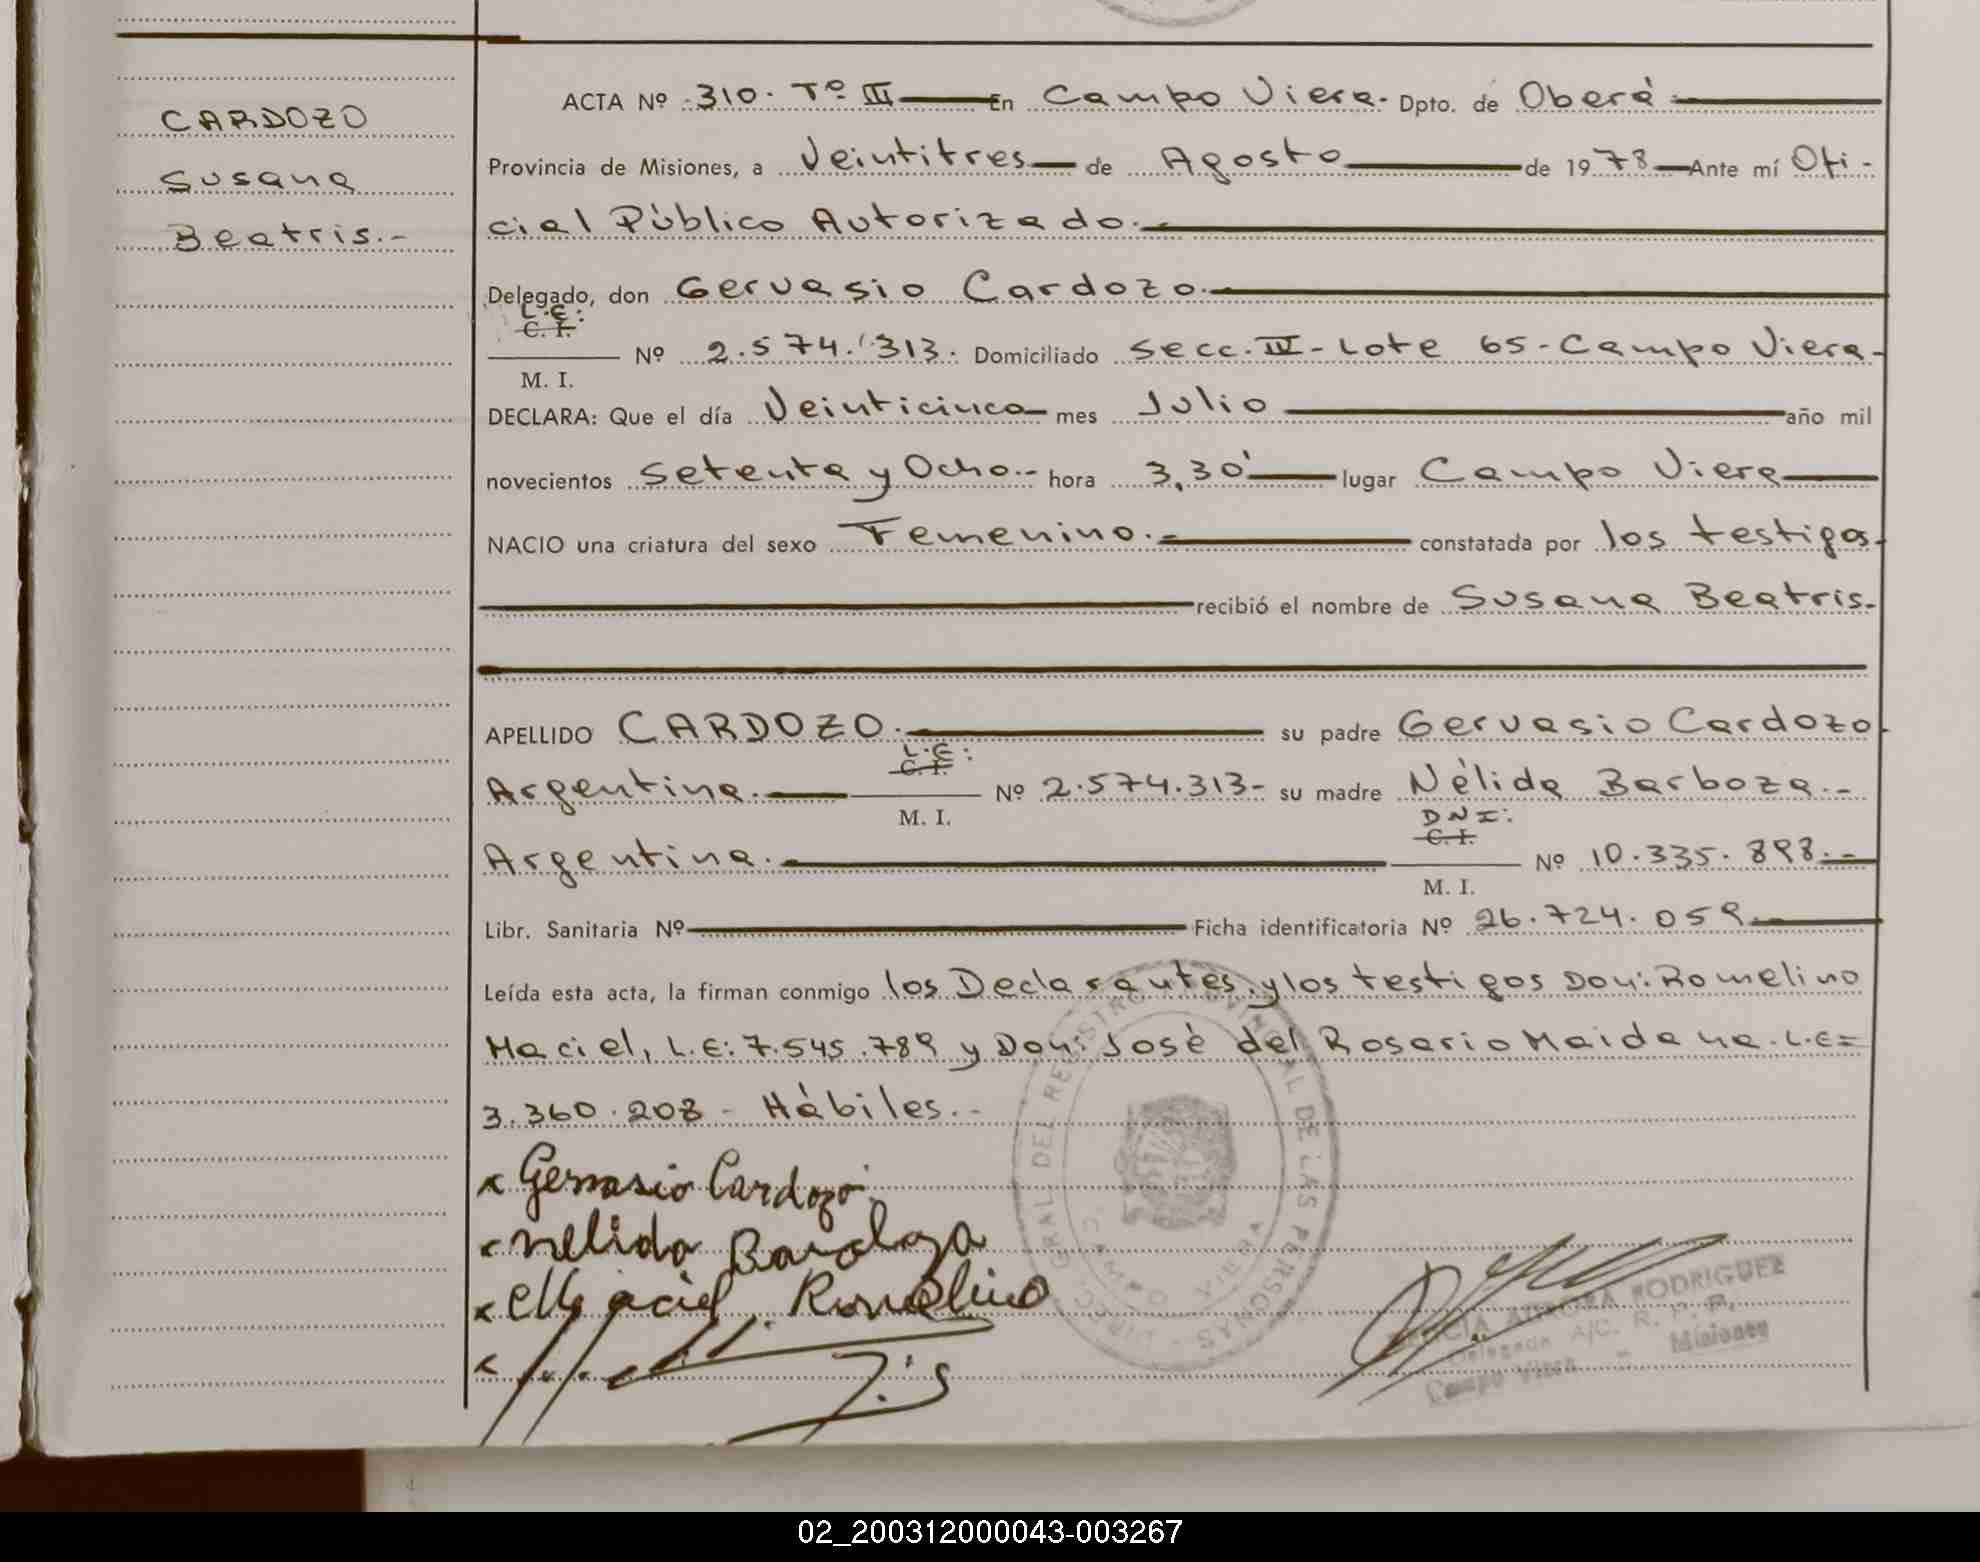 CARDOZO
Susana
Beatris.-
ACTA Nº 310. Tº III En Campo Viera. Dpto. de Oberá
Provincia de Misiones, a Veintitres de Agosto de 1978 Ante mí Ofi-
cial Público Autorizado.-
Delegado, don Gervasio Cardozo.
L.E:
C. I.
Nº 2.574.313. Domiciliado Secc. IV - Lote 65 - Campo Viera-
M. I.
DECLARA: Que el día Veinticinco mes Julio año mil
novecientos Setenta y Ocho.- hora 3,30' lugar Campo Viera
NACIO una criatura del sexo Femenino.- constatada por los testigos.
recibió el nombre de Susana Beatris.
APELLIDO CARDOZO. su padre Gervasio Cardozo
L.E:
C. I.
Argentina. Nº 2.574.313- su madre Nélida Barboza.-
M. I.
DNI:
C. I.
Argentina. Nº 10.335.898.-
M. I.
Libr. Sanitaria Nº Ficha identificatoria Nº 26.724.059.
Leída esta acta, la firman conmigo los Declarantes, y los testigos Don: Romelino
Maciel, L.E: 7.545.789 y Don: José del Rosario Maidana. L.E=
3.360.208 - Hábiles.-
x Gervasio Cardozo
x nelida Barboza
x Maciel, Romelino
x
J.S
DIRECC. GRAL. DEL REGISTRO PROVINCIAL DE LAS PERSONAS
CAMPO VIERA
AURORA RODRIGUEZ
Delegada A/C. R. P. P.
Campo Viera - Misiones
02_200312000043-003267